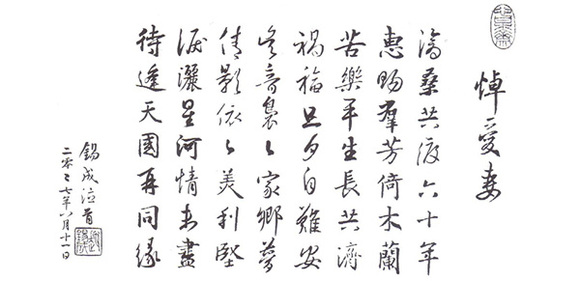 悼愛妻
滄桑共渡六十年
惠賜羣芳倚木蘭
苦樂平生長共濟
禍福旦夕自難安
吳音裊々家鄉夢
倩影依々美利堅
淚灑星河情未盡
待逢天國再同緣
錫成泣首
二零々七年八月十一日